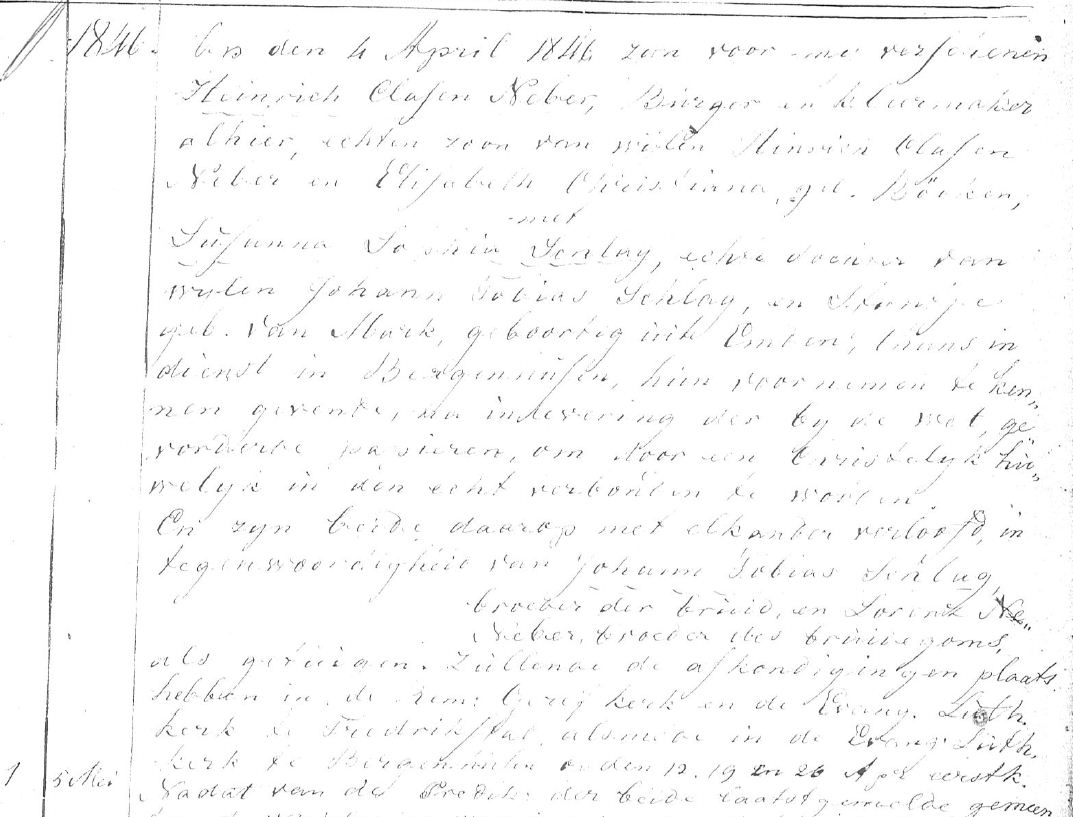 1846. Op den 4 April 1846 zyn voor my verschenen
Heinrich Clasen Neber, Bürger en kleermaker
alhier, echten zoon van wylen Hinrich Clasen
Neber en Elisabeth Christiana, geb. Böeken,
met
Susanna Sophia Schlag, echte dochter van
wylen Johann Tobias Schlag, en
geb. van Mark, geboortig uit Emden, thans in
dienst in Bergenhusen, hun voornemen te ken„
nen gevende, na inlevering der by de wet, ge„
vorderde papieren, om door een Christelyk hu„
welyk in den echt verbonden te worden.
En zyn beide daarop met elkander verloofd, in
tegenwoordigheid van Johann Tobias Schlag,
broeder der bruid, en Lorenz
Neber, broeder des bruidegoms,
als getuigen. Zullende de afkondigingen plaats
hebben in de Rem: Geref kerk en de Evang. Luth.
kerk te Fredrikstad, alsmede in de Evang Luth.
kerk te Bergenhusen den 12. 19 en 26 Apr eerstk.
1 5 Mei Nadat van de Predik: der beide laatstgemelde gemeen